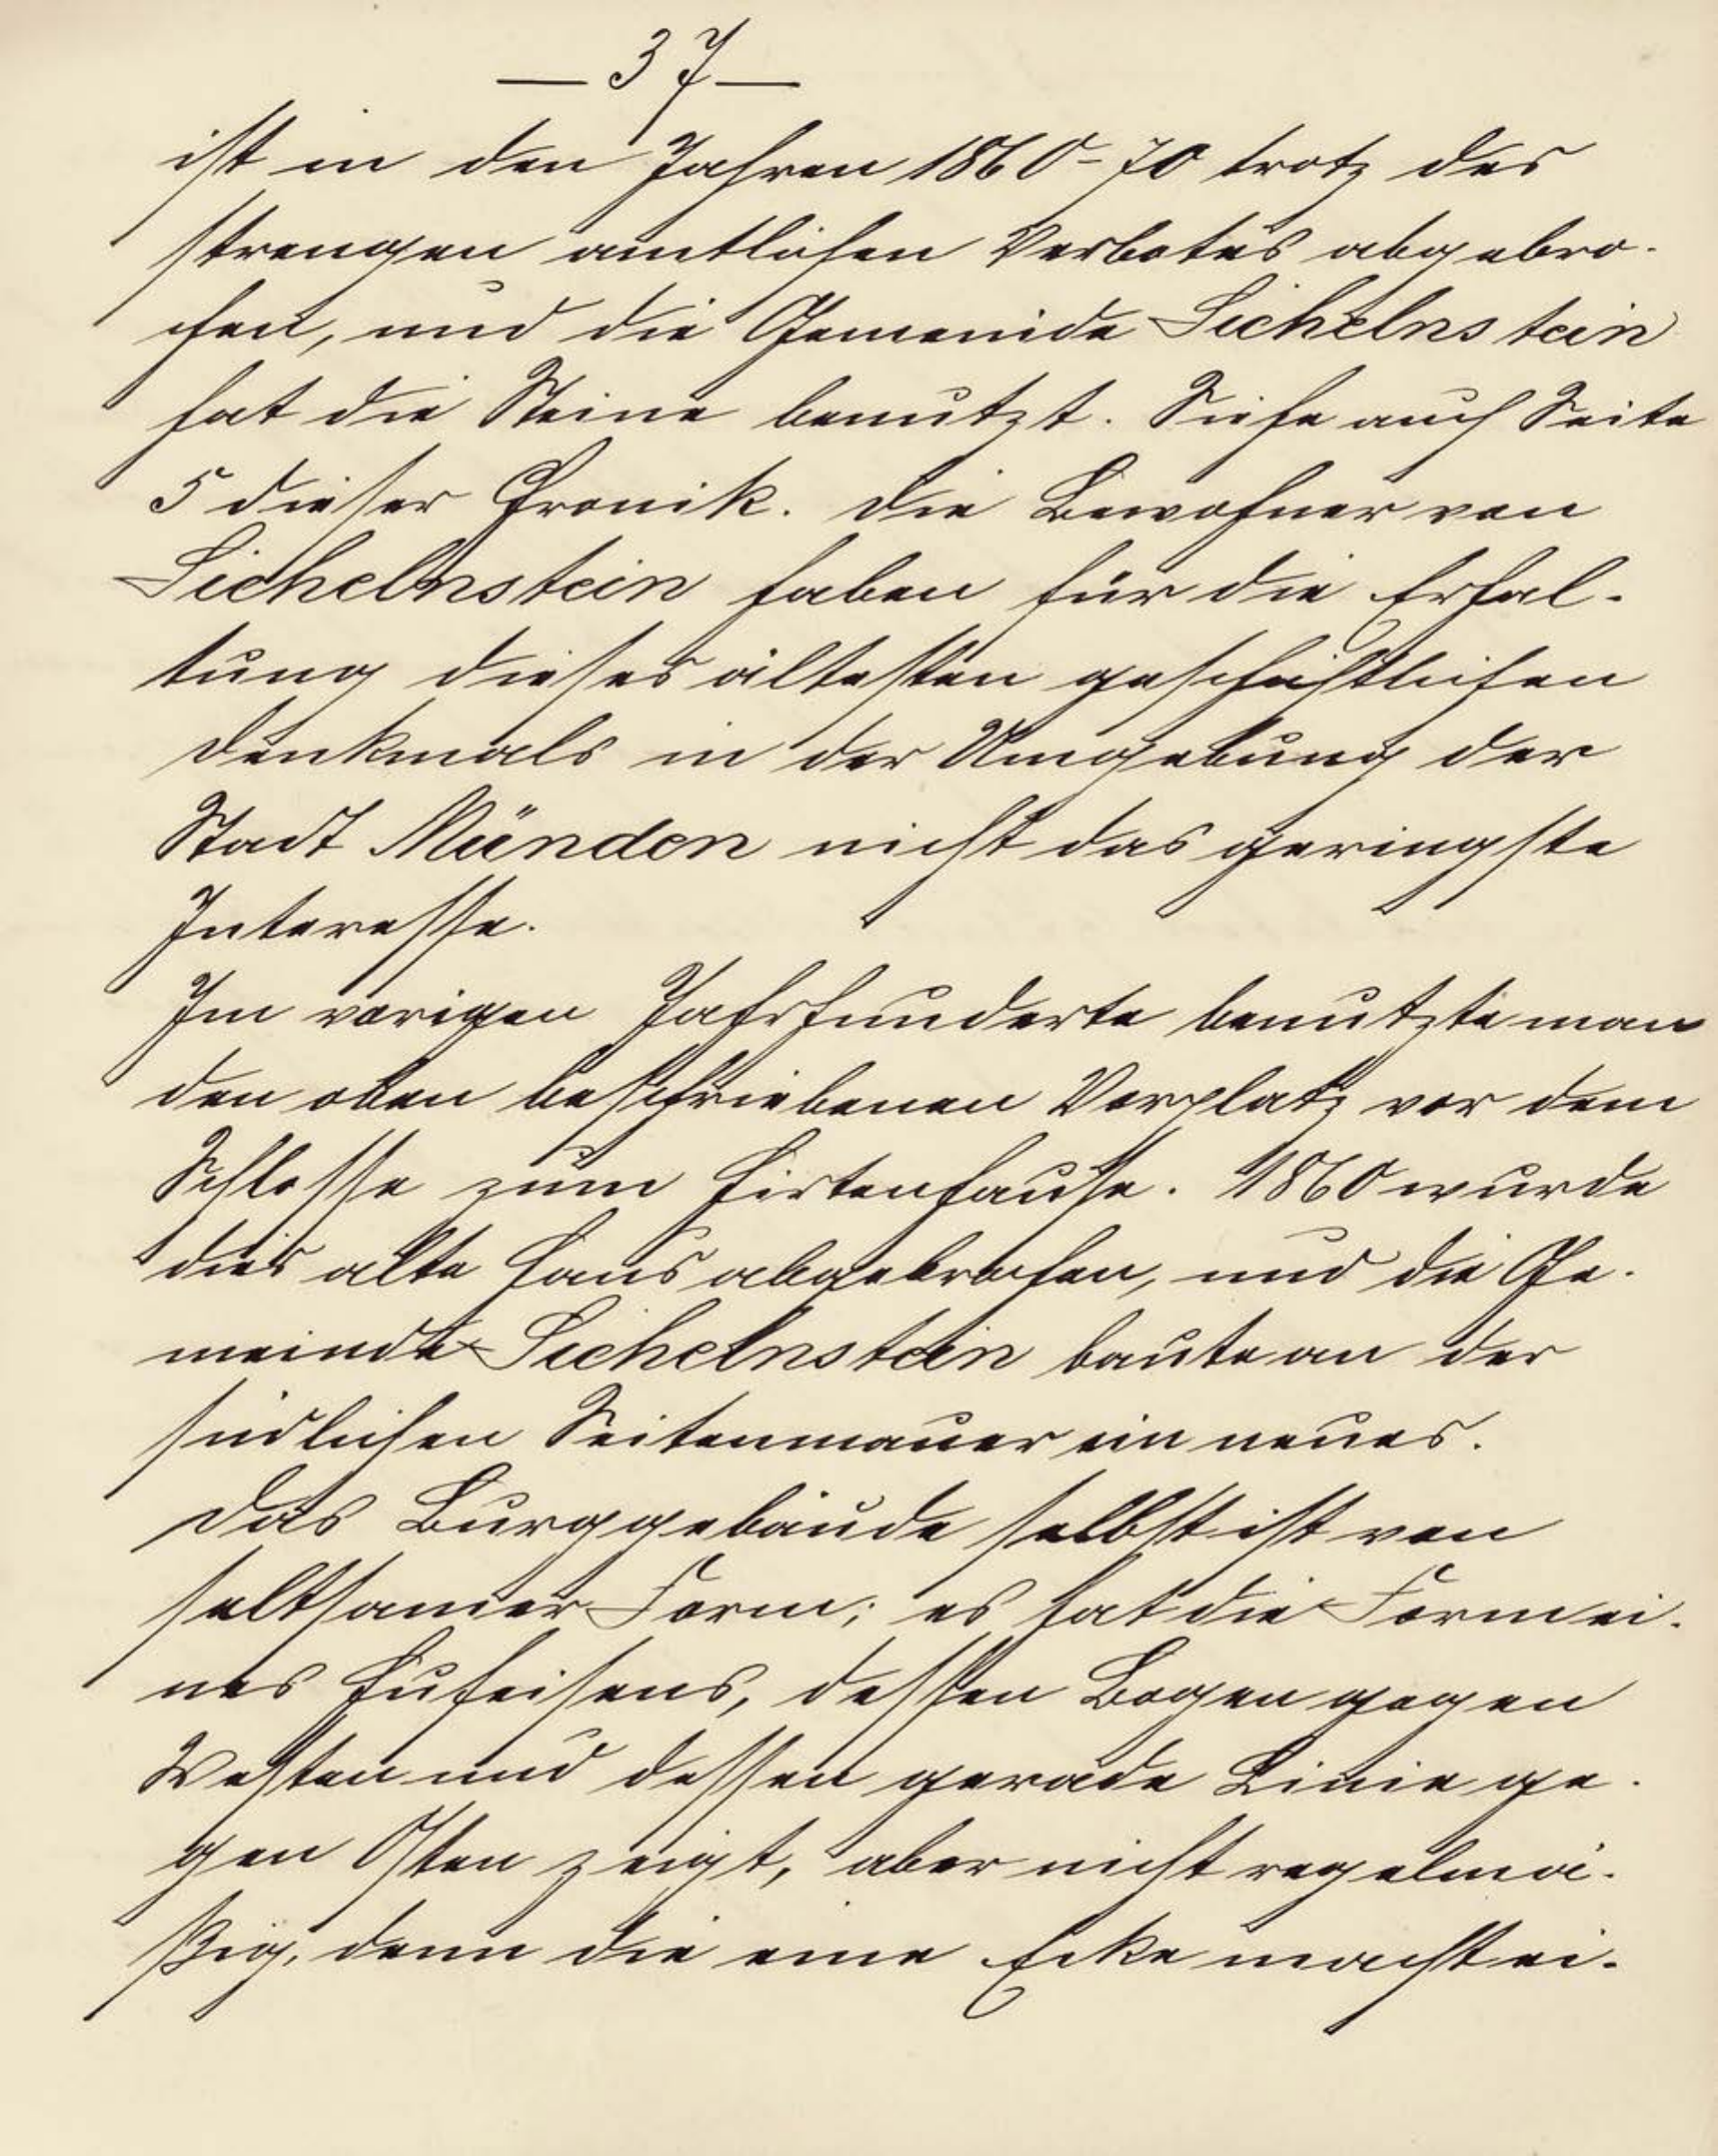 — 37 —
ist in den Jahren 1860-70 trotz des
strengen amtlichen Verbotes abgebro-
chen, und die Gemeinde Sichelnstein
hat die Steine benutzt. Siehe auch Seite
5 dieser Chronik. Die Bewohner von
Sichelnstein haben für die Erhal-
tung dieses ältesten geschichtlichen
Denkmals in der Umgebung der
Stadt Münden nicht das geringste
Interesse.
Im vorigen Jahrhunderte benutzte man
den oben beschriebenen Vorplatz vor dem
Schlosse zum Hirtenhause. 1860 wurde
dies alte Haus abgebrochen, und die Ge-
meinde Sichelnstein baute an der
südlichen Seitenmauer ein neues.
Das Burggebäude selbst ist von
seltsamer Form; es hat die Form ei-
nes Hufeisens, dessen Bogen gegen
Westen und dessen gerade Linie ge-
gen Osten zeigt, aber nicht regelmä-
ßig, denn die eine Ecke macht ei-